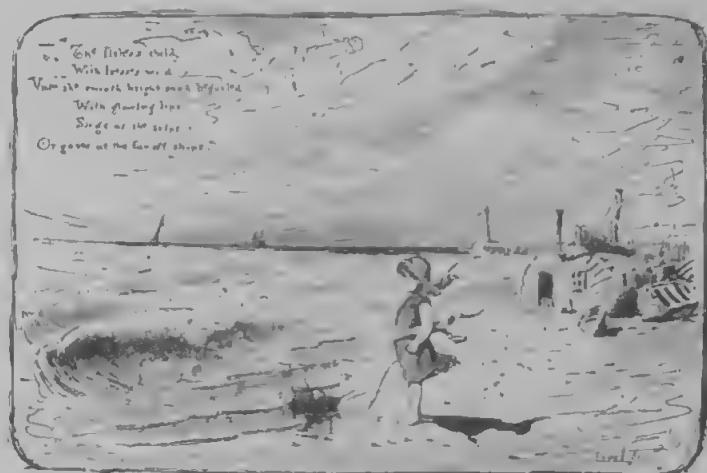 The fisher's child,
With tresses wild,
Unto the smooth bright sand beguiled
With glowing lips
Sings as she skips,
Or gazes at the far-off ships.